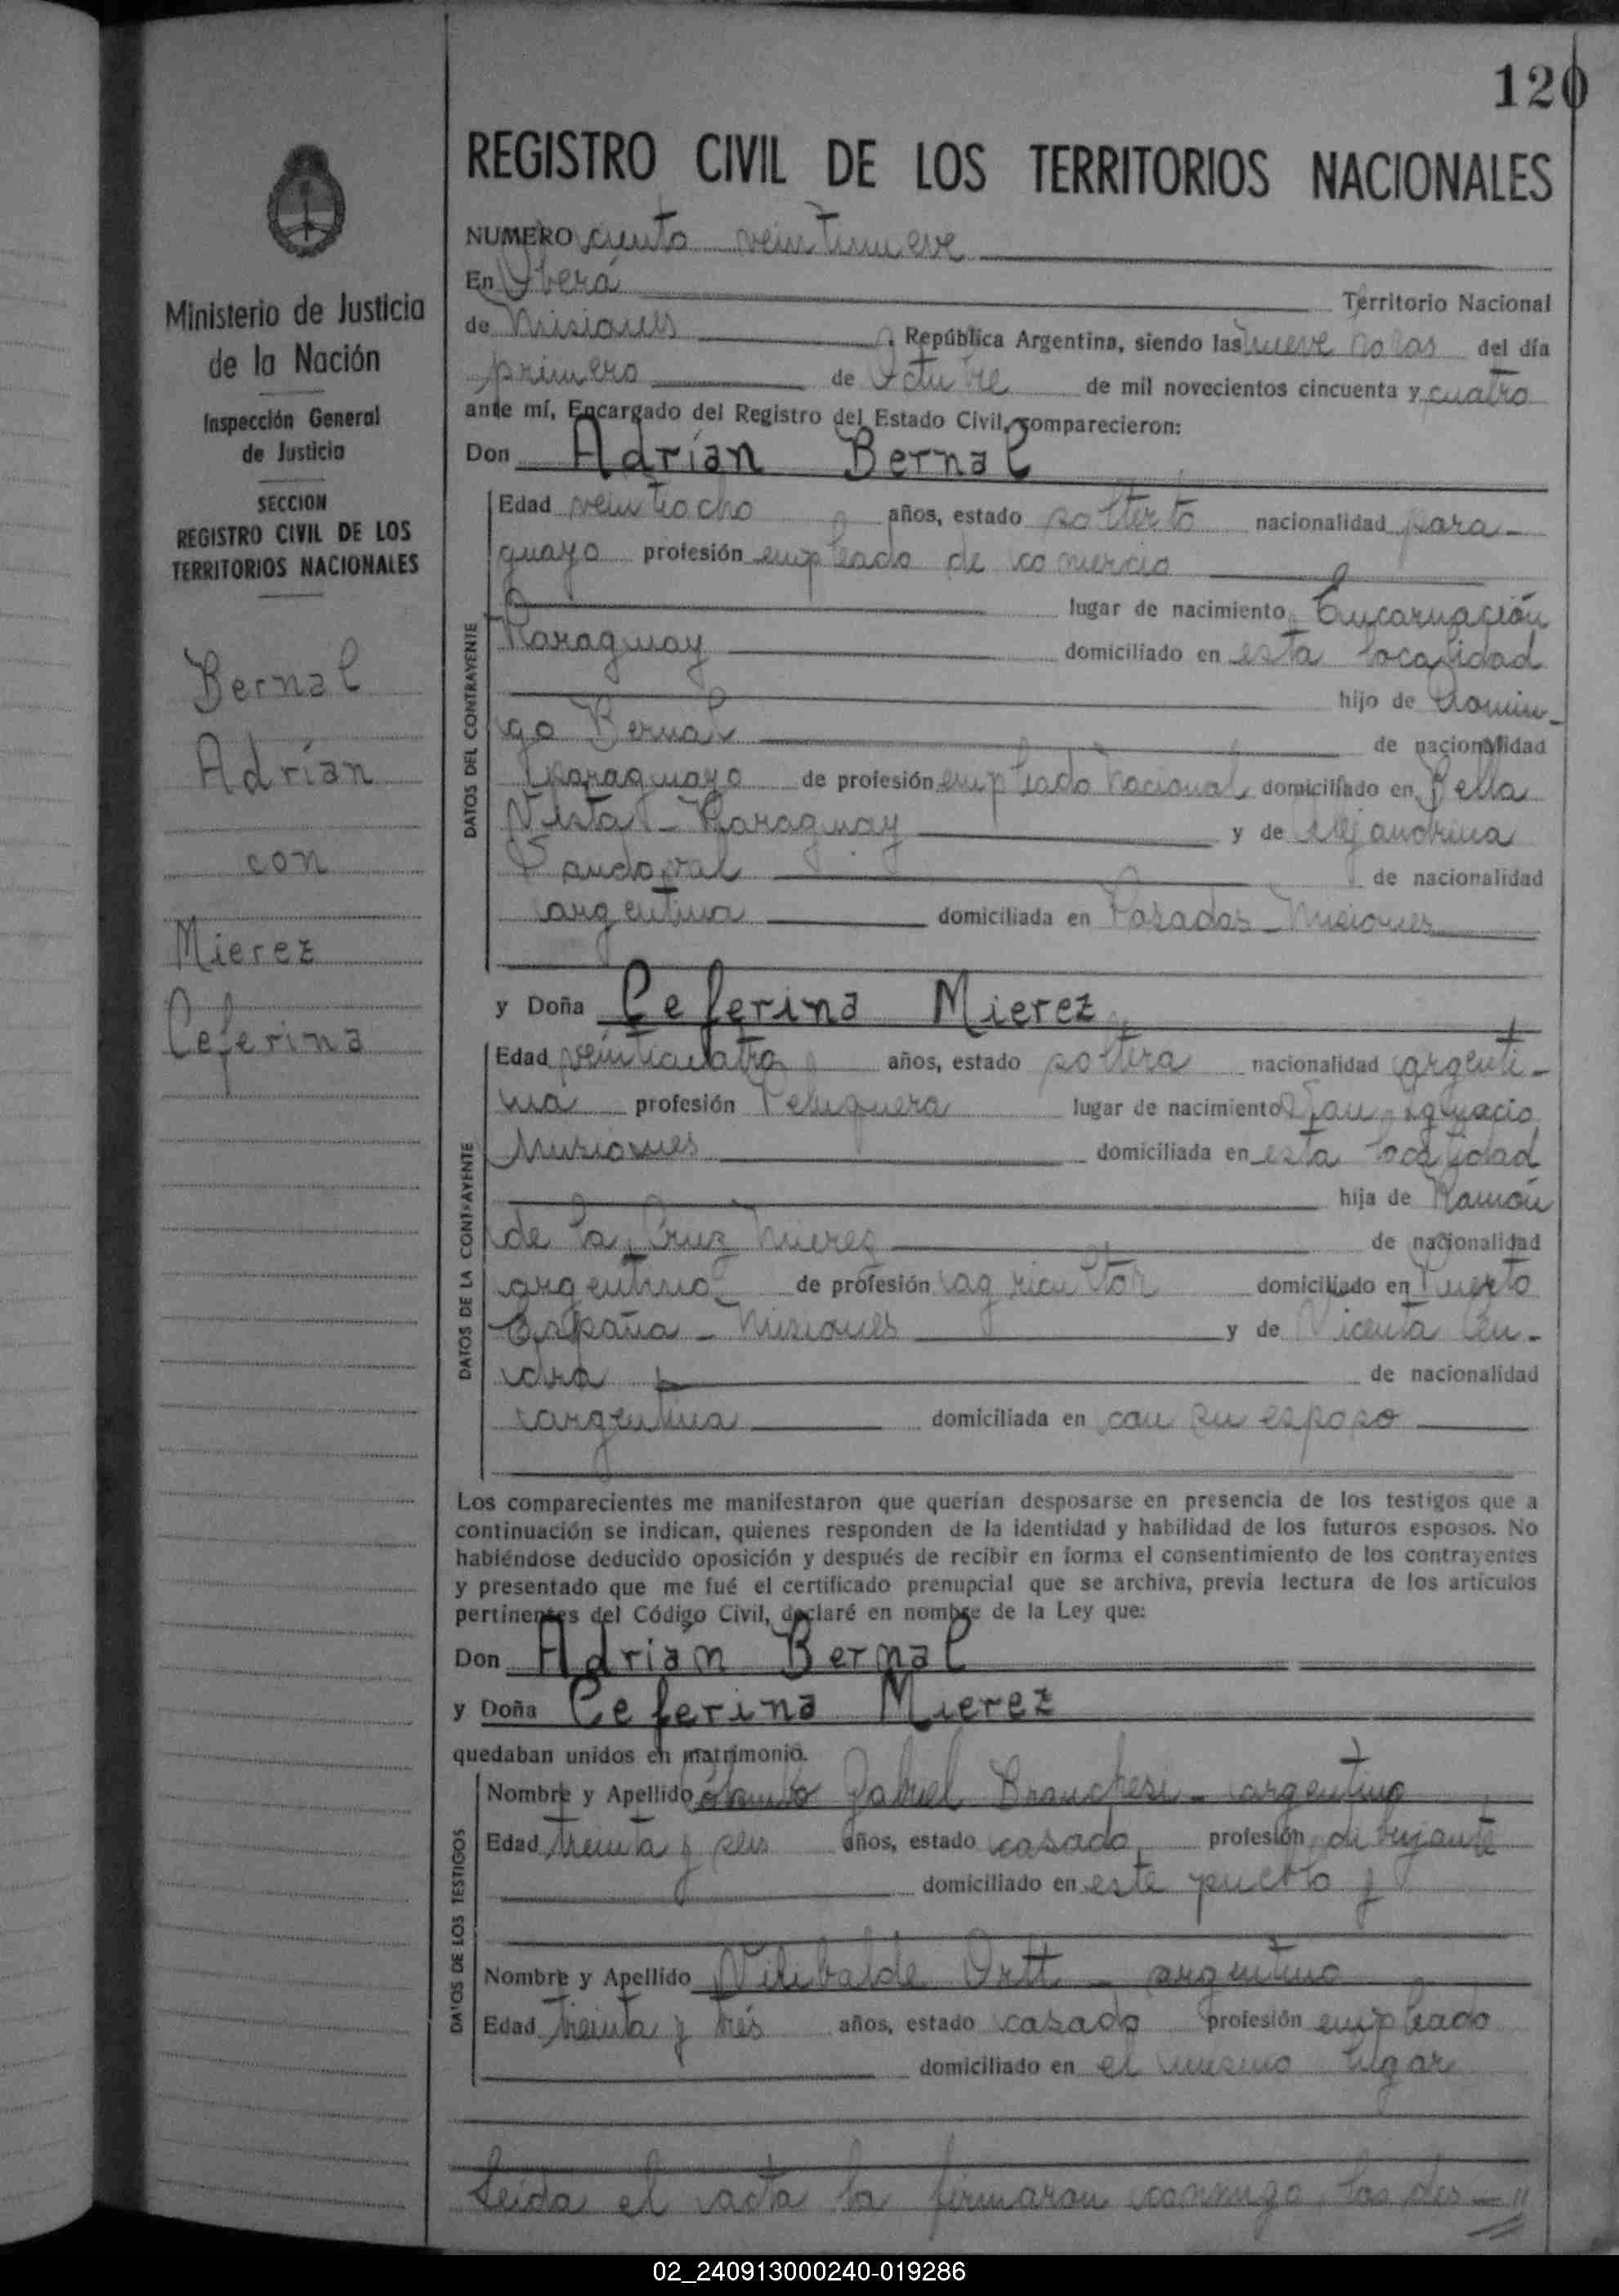 120
REGISTRO CIVIL DE LOS TERRITORIOS NACIONALES
NUMERO ciento veintinueve
En Oberá Territorio Nacional
de Misiones, República Argentina, siendo las nueve horas del día
primero de Octubre de mil novecientos cincuenta y cuatro
ante mí, Encargado del Registro del Estado Civil, comparecieron:
Don Adrían Bernal
Edad veintiocho años, estado soltero nacionalidad para-
guayo profesión empleado de comercio
lugar de nacimiento Encarnación
Paraguay domiciliado en esta localidad
hijo de Domin-
go Bernal de nacionalidad
paraguayo de profesión empleado nacional domiciliado en Bella
Vista - Paraguay y de Alejandrina
Sandoval de nacionalidad
argentina domiciliada en Posadas - Misiones
y Doña Ceferina Mierez
Edad veinticuatro años, estado soltera nacionalidad argenti-
na profesión Peluquera lugar de nacimiento San Ignacio
Misiones domiciliada en esta localidad
hija de Ramón
de la Cruz Mierez de nacionalidad
argentino de profesión agricultor domiciliado en Puerto
España - Misiones y de Vicenta
de nacionalidad
argentina domiciliada en con su esposo
Los comparecientes me manifestaron que querían desposarse en presencia de los testigos que a
continuación se indican, quienes responden de la identidad y habilidad de los futuros esposos. No
habiéndose deducido oposición y después de recibir en forma el consentimiento de los contrayentes
y presentado que me fué el certificado prenupcial que se archiva, previa lectura de los artículos
pertinentes del Código Civil, declaré en nombre de la Ley que:
Don Adrián Bernal
y Doña Ceferina Mierez
quedaban unidos en matrimonio.
Nombre y Apellido Gabriel Branchesi - argentino
Edad treinta y seis años, estado casado, profesión dibujante
domiciliado en este pueblo y
Nombre y Apellido Vilibalde Ortt - argentino
Edad treinta y trés años, estado casado profesión empleado
domiciliado en el mismo lugar
Leída el acta la firmaron conmigo los des-"
Ministerio de Justicia
de la Nación
Inspección General
de Justicia
SECCION
REGISTRO CIVIL DE LOS
TERRITORIOS NACIONALES
Bernal
Adrían
con
Mierez
Ceferina
DATOS DEL CONTRAYENTE
DATOS DE LA CONTRAYENTE
DATOS DE LOS TESTIGOS
02_240913000240-019286